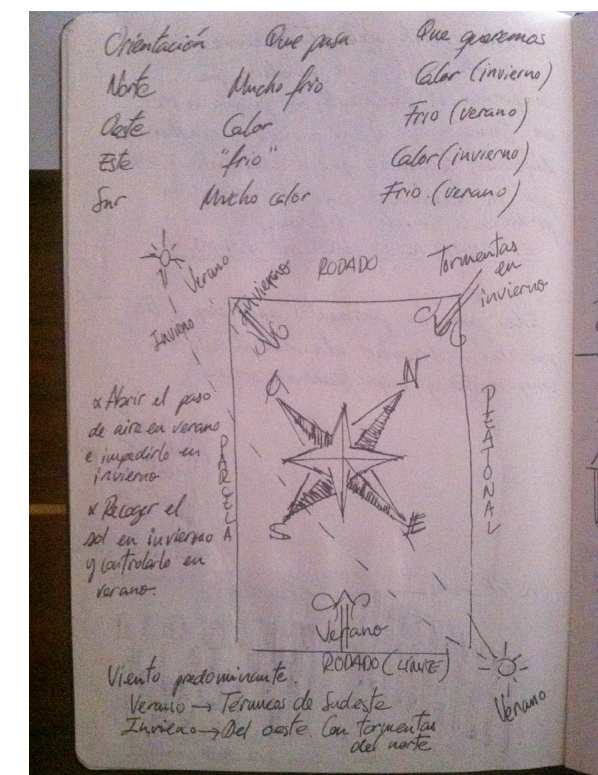 Orientación Que pasa Que queremos
Norte Mucho frio Calor (invierno)
Oeste Calor Frio (verano)
Este "frio" Calor (invierno)
Sur Mucho calor Frio. (verano)
Verano
Invierno
Invierno
RODADO
Tormentas
en
invierno
O
N
S
E
x Abrir el paso
de aire en verano
e impedirlo en
invierno
x Recoger el
sol en invierno
y controlarlo en
verano.
PARCELA
PEATONAL
Verano
RODADO (LÍMITE)
Verano
Viento predominante.
Verano → Térmicas de Sudeste
Invierno → Del oeste. Con tormentas
del norte